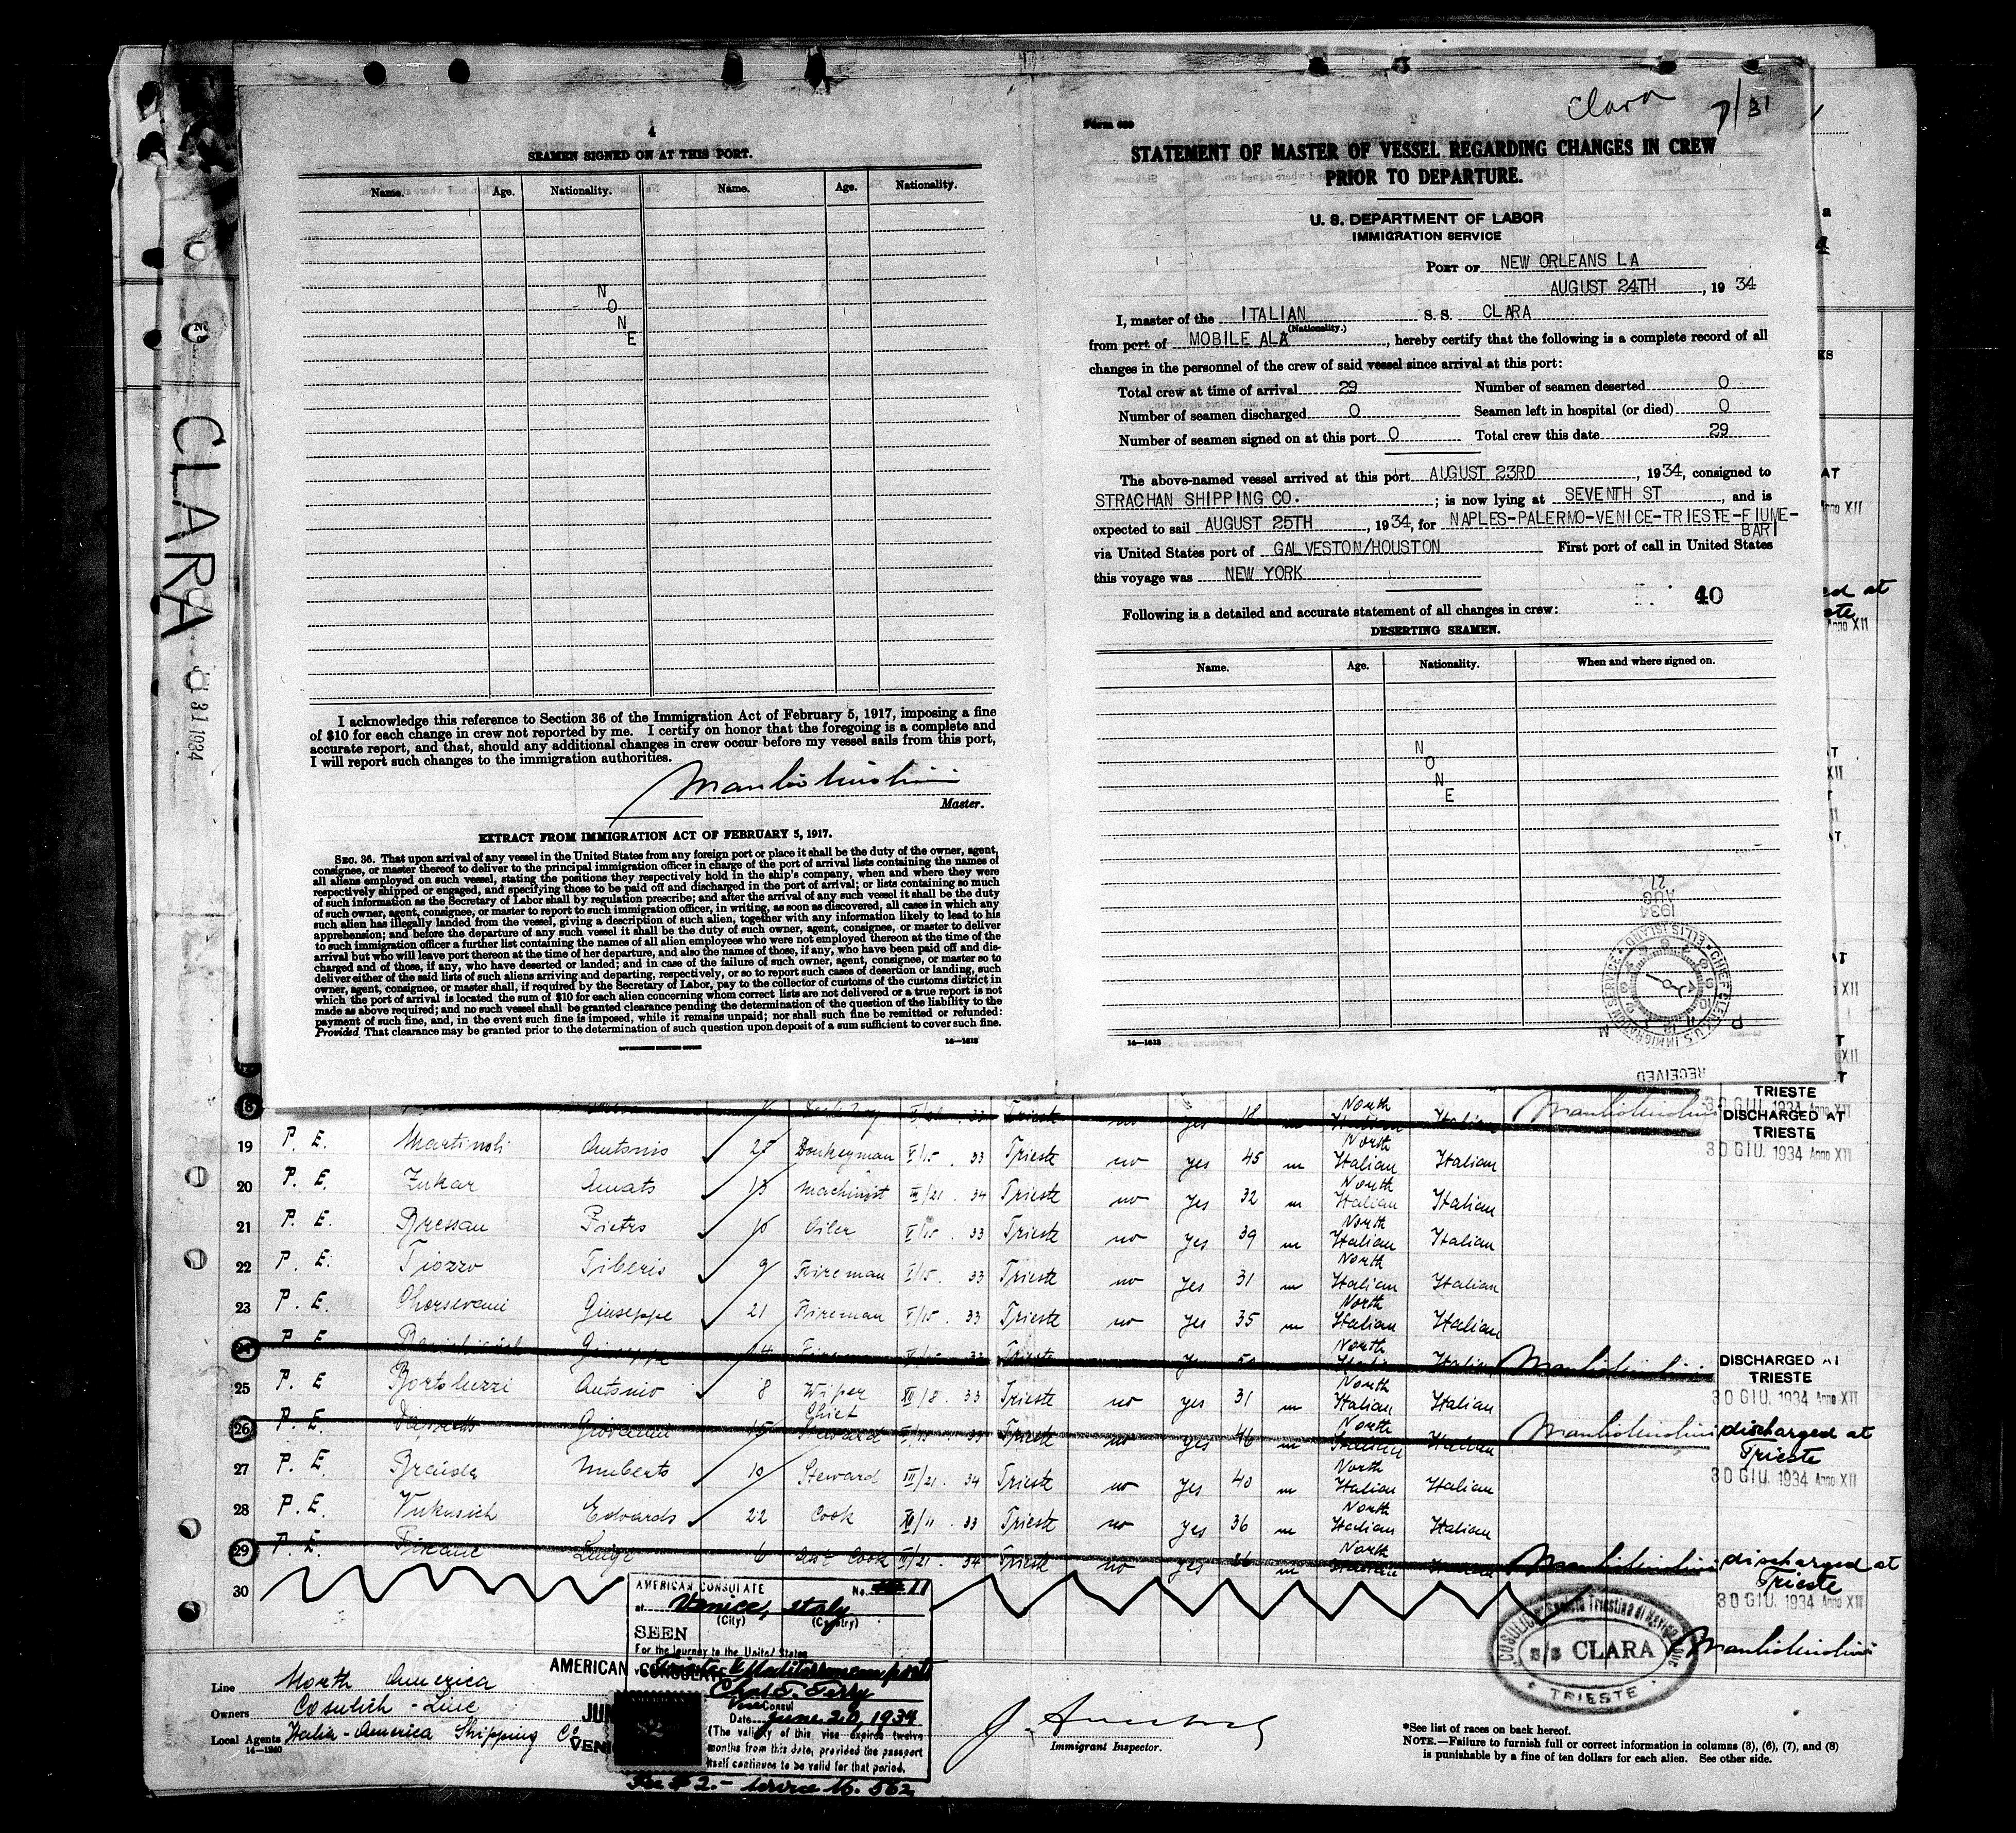 Clara 7/31
4
SEAMEN SIGNED ON AT THIS PORT.
Name. Age. Nationality. Name. Age. Nationality.
NONE
I acknowledge this reference to Section 36 of the Immigration Act of February 5, 1917, imposing a fine
of $10 for each change in crew not reported by me. I certify on honor that the foregoing is a complete and
accurate report, and that, should any additional changes in crew occur before my vessel sails from this port,
I will report such changes to the immigration authorities.
Master.
EXTRACT FROM IMMIGRATION ACT OF FEBRUARY 5, 1917.
SEC. 36. That upon arrival of any vessel in the United States from any foreign port or place it shall be the duty of the owner, agent,
consignee, or master thereof to deliver to the principal immigration officer in charge of the port of arrival lists containing the names of
all aliens employed on such vessel, stating the positions they respectively hold in the ship's company, when and where they were
respectively shipped or engaged, and specifying those to be paid off and discharged in the port of arrival; or lists containing so much
of such information as the Secretary of Labor shall by regulation prescribe; and after the arrival of any such vessel it shall be the duty
of such owner, agent, consignee, or master to report to such immigration officer, in writing, as soon as discovered, all cases in which any
such alien has illegally landed from the vessel, giving a description of such alien, together with any information likely to lead to his
apprehension; and before the departure of any such vessel it shall be the duty of such owner, agent, consignee, or master to deliver
to such immigration officer a further list containing the names of all alien employees who were not employed thereon at the time of the
arrival but who will leave port thereon at the time of her departure, and also the names of those, if any, who have been paid off and dis-
charged and of those, if any, who have deserted or landed; and in case of the failure of such owner, agent, consignee, or master so to
deliver either of the said lists of such aliens arriving and departing, respectively, or so to report such cases of desertion or landing, such
owner, agent, consignee, or master shall, if required by the Secretary of Labor, pay to the collector of customs of the customs district in
which the port of arrival is located the sum of $10 for each alien concerning whom correct lists are not delivered or a true report is not
made as above required; and no such vessel shall be granted clearance pending the determination of the question of the liability to the
payment of such fine, and, in the event such fine is imposed, while it remains unpaid; nor shall such fine be remitted or refunded:
Provided, That clearance may be granted prior to the determination of such question upon deposit of a sum sufficient to cover such fine.
GOVERNMENT PRINTING OFFICE 14—1613
STATEMENT OF MASTER OF VESSEL REGARDING CHANGES IN CREW
PRIOR TO DEPARTURE.
U. S. DEPARTMENT OF LABOR
IMMIGRATION SERVICE
PORT OF NEW ORLEANS LA
AUGUST 24TH, 1934
I, master of the ITALIAN S. S. CLARA
(Nationality.)
from port of MOBILE ALA, hereby certify that the following is a complete record of all
changes in the personnel of the crew of said vessel since arrival at this port:
Total crew at time of arrival 29 Number of seamen deserted 0
Number of seamen discharged 0 Seamen left in hospital (or died) 0
Number of seamen signed on at this port 0 Total crew this date 29
The above-named vessel arrived at this port AUGUST 23RD, 1934, consigned to
STRACHAN SHIPPING CO.; is now lying at SEVENTH ST, and is
expected to sail AUGUST 25TH, 1934, for NAPLES-PALERMO-VENICE-TRIESTE-FIUME-
BARI
via United States port of GALVESTON/HOUSTON First port of call in United States
this voyage was NEW YORK
40
Following is a detailed and accurate statement of all changes in crew:
DESERTING SEAMEN.
Name. Age. Nationality. When and where signed on.
NONE
1934
AUG
27
RECEIVED
14—1613
CLARA
31 1934
18 Trieste no yes 18 North Italian Italian
TRIESTE
30 GIU. 1934 Anno XII
DISCHARGED AT
TRIESTE
30 GIU. 1934 Anno XII
19 P. E. Martinoli Antonio Donkeyman 33 Trieste no yes 45 m North Italian Italian
20 P. E. Zukar Amato 13 Machinist 34 Trieste no yes 32 m North Italian Italian
21 P. E. Bressan Pietro Oiler 33 Trieste no yes 39 m North Italian Italian
22 P. E. Tiozzo Tiberio 9 Fireman 33 Trieste no yes 31 m North Italian Italian
23 P. E. Giuseppe 21 Fireman 33 Trieste no yes 35 m North Italian Italian
24 P. E. Giuseppe 14 Fireman 33 Trieste yes North Italian Italian
DISCHARGED AT
TRIESTE
30 GIU. 1934 Anno XII
25 P. E Bortoluzzi Antonio 8 Wiper 33 Trieste no yes 31 m North Italian Italian
26 P. E. Giovanni 15 Chief Steward 33 Trieste no yes 46 m North Italian Italian discharged at
Trieste
30 GIU. 1934 Anno XII
27 P. E. Umberto 10 Steward III/21 . 34 Trieste no yes 40 m North Italian Italian
28 P. E. Vukusich Edoardo 22 Cook 33 Trieste no yes 36 m North Italian Italian
29 P. E. Luigi 6 Cook 34 Trieste no yes m North Italian Italian discharged at
Trieste
30 GIU. 1934 Anno XII
30
AMERICAN CONSULATE No. 11
at Venice, Italy
(City) (Country)
SEEN
For the journey to the United States
AMERICAN CONSULATE
Vice Consul
Date June 20, 1934
(The validity of this visa expires twelve
months from this date, provided the passport
itself continues to be valid for that period.
Fee $2.- Service No. 562
Line North America
Owners Cosulich - Line
Local Agents Italia-America Shipping Co
14—1240
Immigrant Inspector.
S/S CLARA
TRIESTE
*See list of races on back hereof.
NOTE.—Failure to furnish full or correct information in columns (3), (6), (7), and (8)
is punishable by a fine of ten dollars for each alien. See other side.